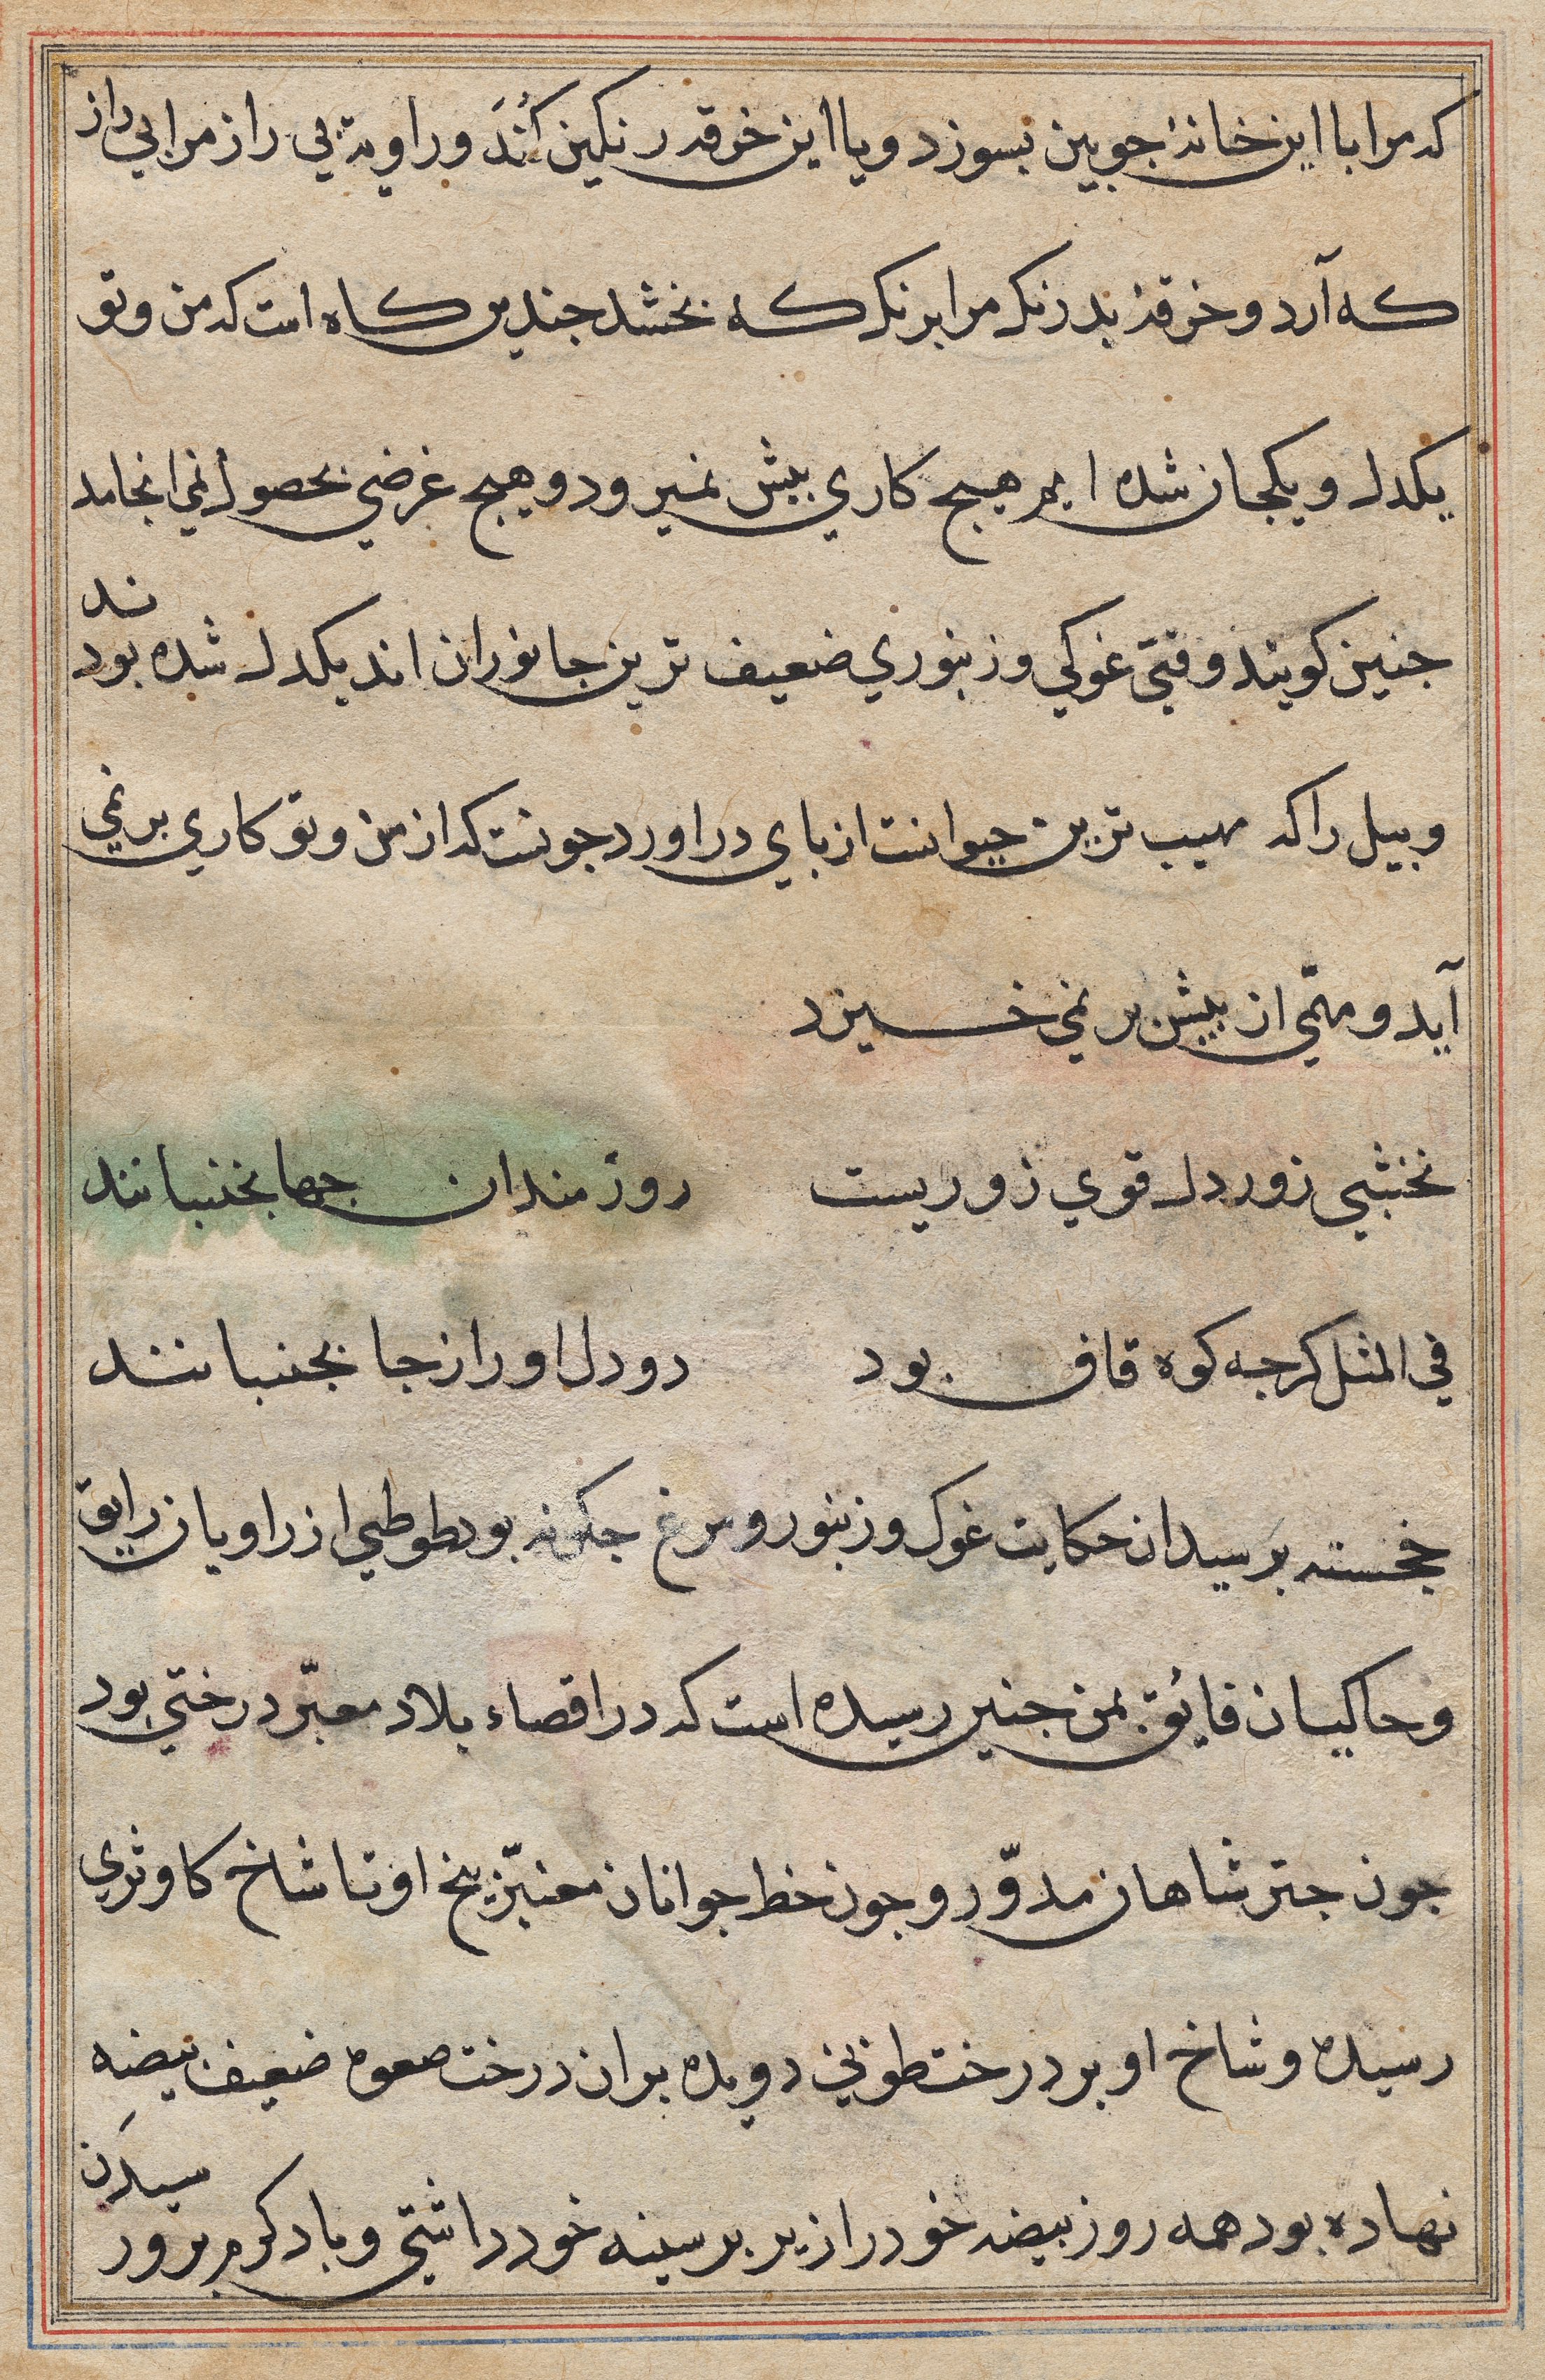 که مرا با این خانهٔ جوبین بسوزد و یا این خرقه رنکین کُنَد و راویهٔ بی راز مرا بی راز
که آرد و خرقهٔ بدرنک مرا برنک که بخشد جندین کاه است که من و تو
یکدل و یکجان شده ایم هیج کاری بیش نمیرود و هیج غرضی بحصول نمی انجامد
جنین کویند وقتی غوکی و زنبوری ضعیف ترین جانوران اند یکدل شده بود ند
و بیل را که مهیب ترین حیوانست از بای دراورد جونست که از من و تو کاری بر نمی
آید و مهمّی از بیش بر نمی خسیزد
نخشبی زور دل قوی زوریست
روزمندان جها بخنبانند
فی المثل کرجه کوه قاف بود
دو دل او را زجا بجنبانند
خجسته برسید ان حکایت غوک و زنبور و مرغ جکونه بود طوطی از راویان رایق
و حاکیان فایق بمن جنین رسیده است که در اقصاء بلاد معبّر درختی بود
جون جتر شاهان مدوّر و جون خط جوانان معنبّر بیخ او تا شاخ کاو ثری
رسیده و شاخ او بر درخت طوبی دویده بران درخت صعوه ضعیف بیضه
نهاده بود همه روز بیضه خود را زیر بر سینه خود داشتی و باد کرم برور سیدن